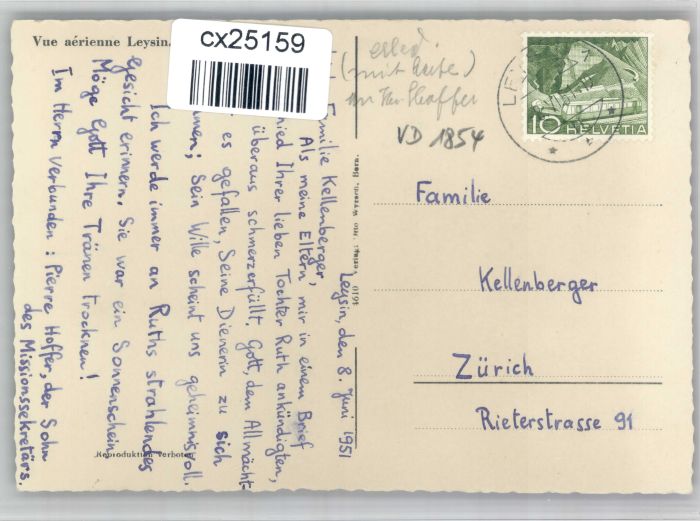 Vue aérienne Leysin.
cx25159
(mit
VD 1854
LEY
10
HELVETIA
Leysin, den 8. Juni 1951
Familie Kellenberger,
Als meine Eltern mir in einem Brief
Ihrer lieben Tochter Ruth ankündigten,
überaus schmerzerfüllt. Gott, dem Allmächt-
es gefallen, Seine Dienerin zu sich
Sein Wille scheint uns geheimnisvoll.
Ich werde immer an Ruths strahlendes
Gesicht erinnern. Sie war ein Sonnenschein
Möge Gott Ihre Tränen trocknen!
Im Herrn verbunden: Pierre Hoffer, der Sohn
des Missionssekretärs.
Familie
Kellenberger
Zürich
Rieterstrasse 91
Reproduktion verboten